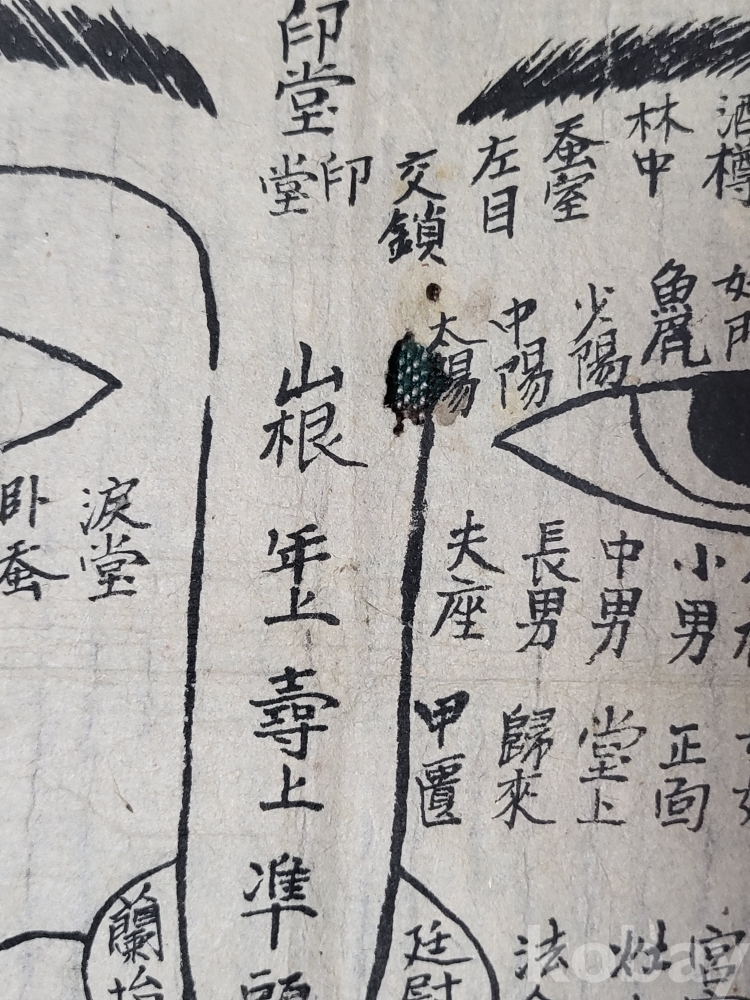 印堂
印堂
交鎖
左目
蚕室
林中
酒樽
太陽
中陽
少陽
魚尾
奸門
山根
年上
壽上
準頭
臥蚕
淚堂
夫座
長男
中男
小男
甲匱
歸來
堂上
正面
蘭坮
廷尉
法
灶
宮
kobay